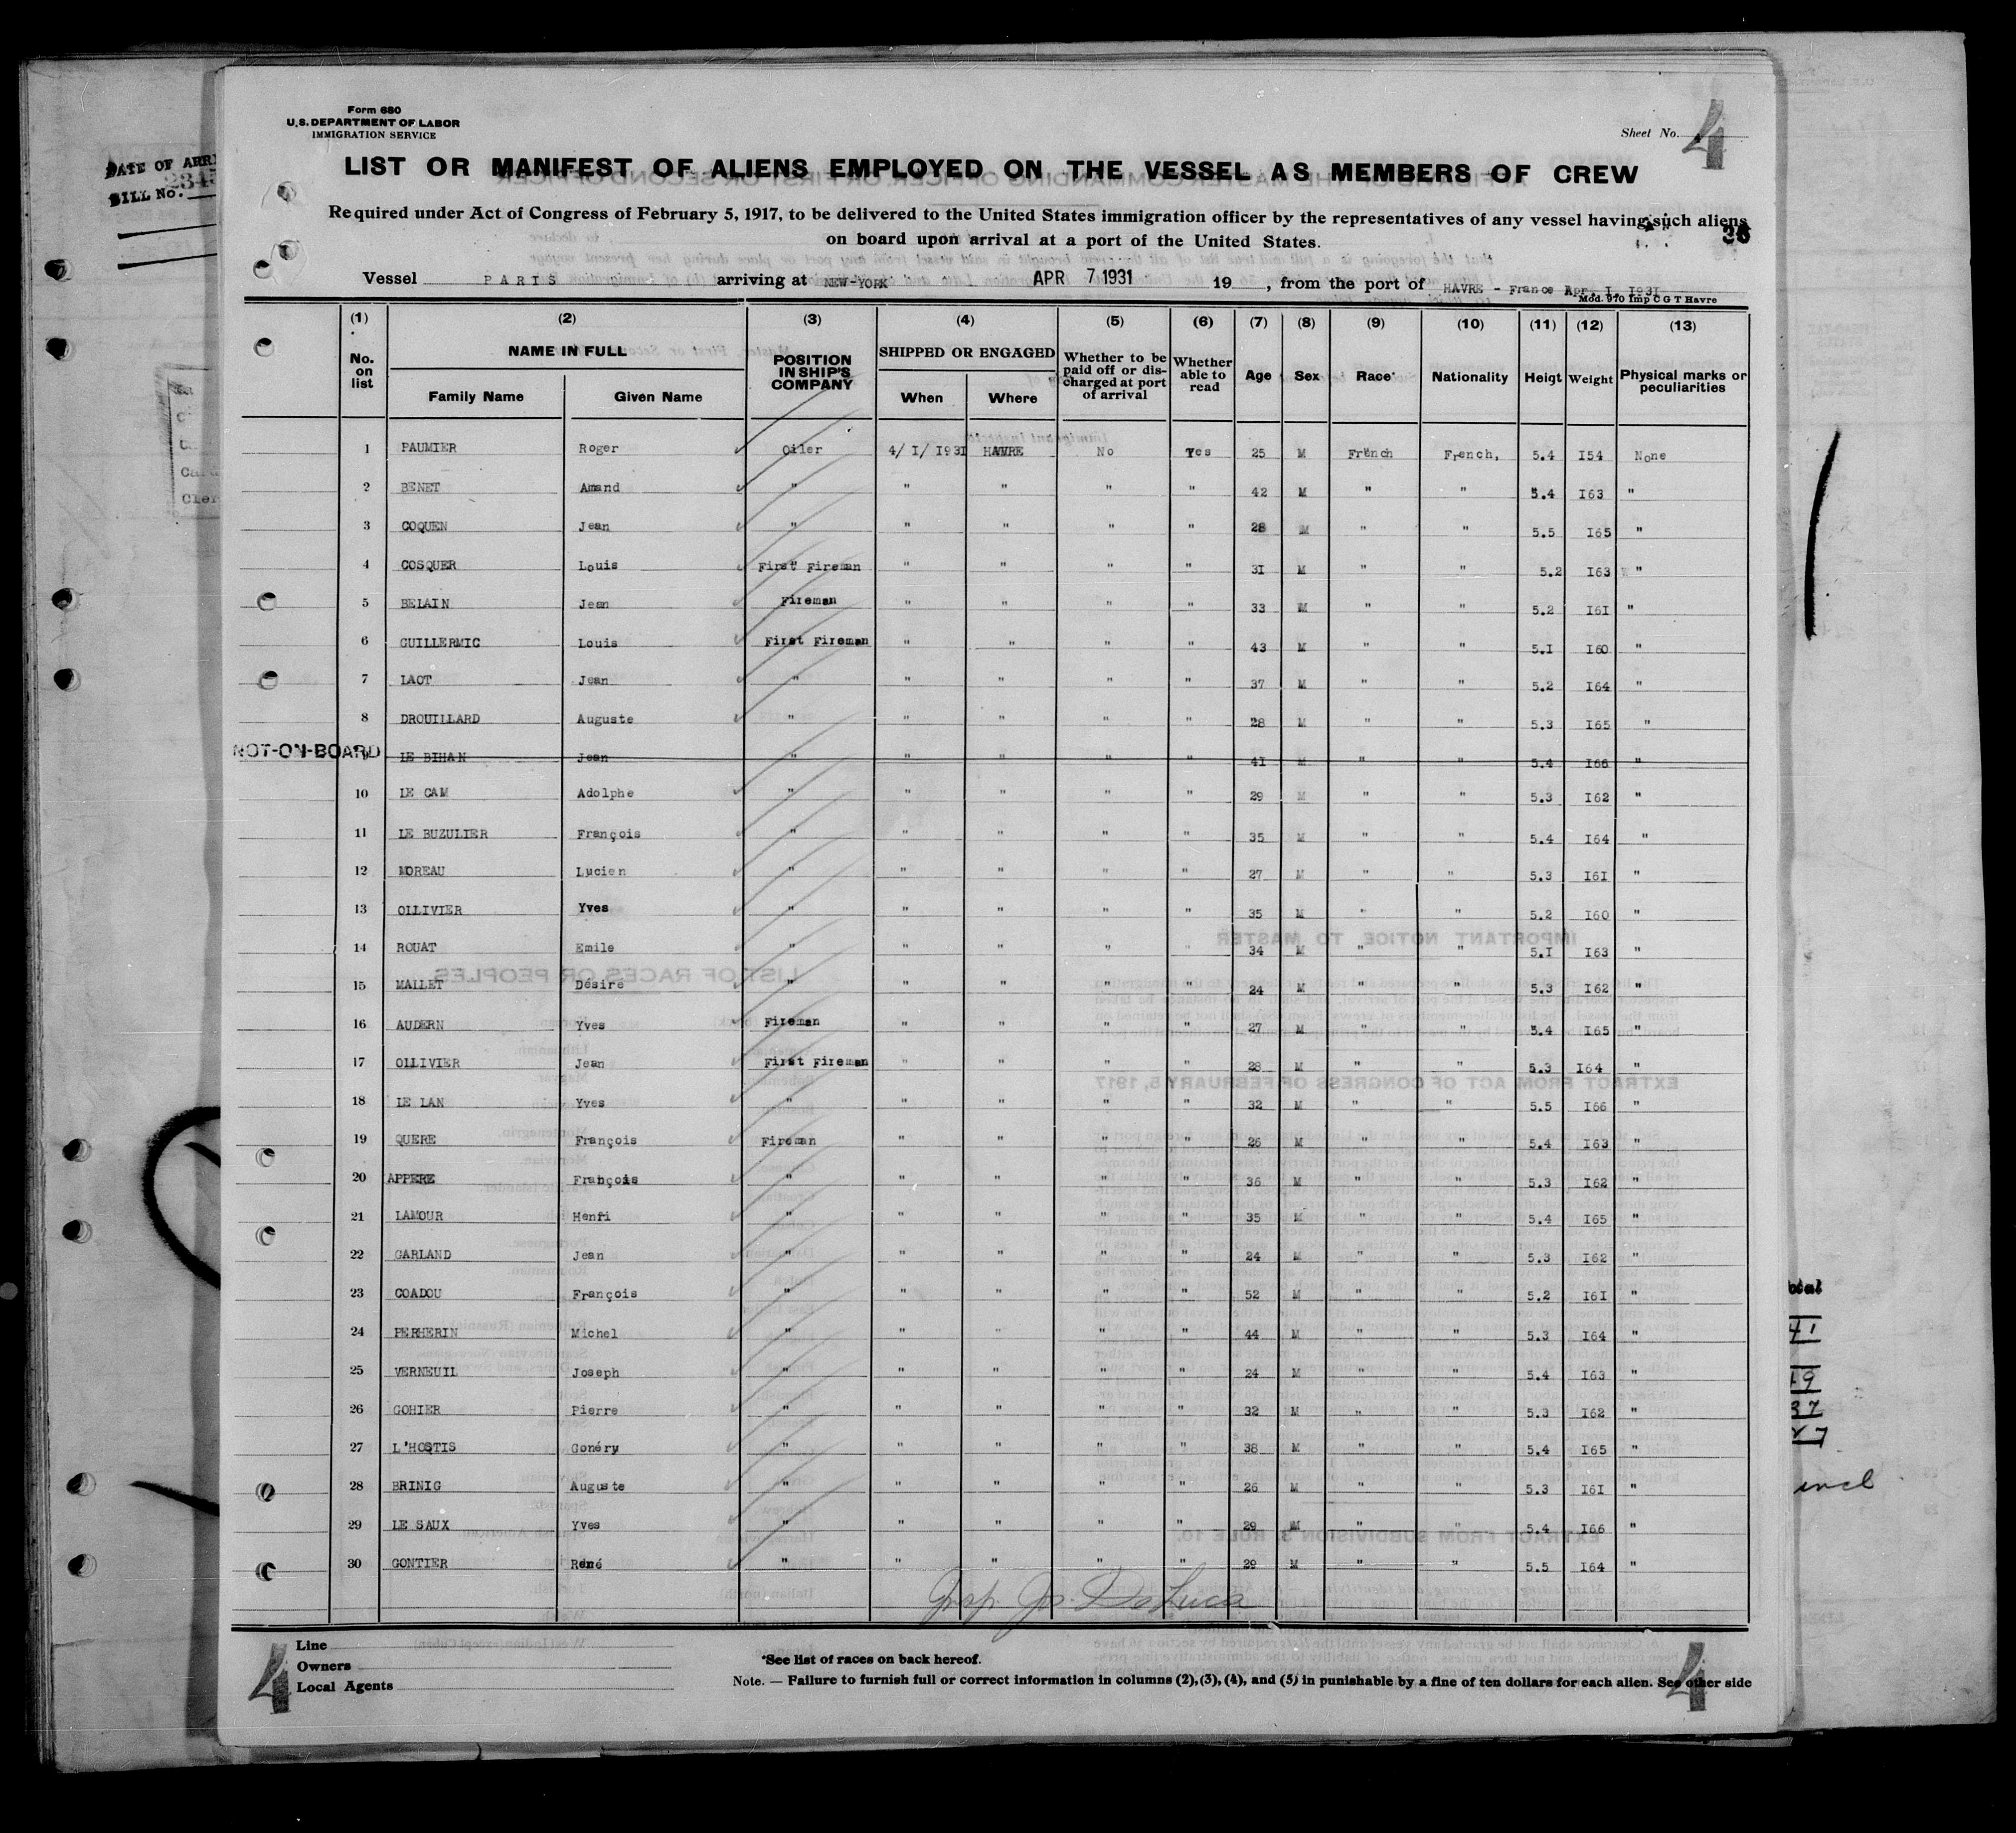 Form 680
U.S. DEPARTMENT OF LABOR
IMMIGRATION SERVICE
Sheet No. 4
LIST OR MANIFEST OF ALIENS EMPLOYED ON THE VESSEL AS MEMBERS OF CREW
Required under Act of Congress of February 5, 1917, to be delivered to the United States immigration officer by the representatives of any vessel having such aliens
on board upon arrival at a port of the United States.
Vessel PARIS arriving at NEW-YORK APR 7 1931 19 , from the port of HAVRE - France Apr. I. I93I
Mod. 970 Imp C G T Havre
(1) (2) (3) (4) (5) (6) (7) (8) (9) (10) (11) (12) (13)
No. on list NAME IN FULL Family Name Given Name POSITION IN SHIP'S COMPANY SHIPPED OR ENGAGED When Where Whether to be paid off or discharged at port of arrival Whether able to read Age Sex Race* Nationality Heigt Weight Physical marks or peculiarities
1 PAUMIER Roger Oiler 4/ I/ I93I HAVRE No Yes 25 M French French, 5.4 I54 None
2 BENET Amand " " " " " 42 M " " 5.4 I63 "
3 COQUEN Jean " " " " " 28 M " " 5.5 I65 "
4 COSQUER Louis First Fireman " " " " 3I M " " 5.2 I63 "
5 BELAIN Jean Fireman " " " " 33 M " " 5.2 I6I "
6 GUILLERMIC Louis First Fireman " " " " 43 M " " 5.I I60 "
7 LAOT Jean " " " " " 37 M " " 5.2 I64 "
8 DROUILLARD Auguste " " " " " 28 M " " 5.3 I65 "
NOT-ON-BOARD 9 LE BIHAN Jean " " " " " 41 M " " 5.4 I66 "
10 LE CAM Adolphe " " " " " 29 M " " 5.3 I62 "
11 LE BUZULIER François " " " " " 35 M " " 5.4 I64 "
12 MOREAU Lucien " " " " " 27 M " " 5.3 I6I "
13 OLLIVIER Yves " " " " " 35 M " " 5.2 I60 "
14 ROUAT Emile " " " " " 34 M " " 5.I I63 "
15 MALLET Désiré " " " " " 24 M " " 5.3 I62 "
16 AUDERN Yves Fireman " " " " 27 M " " 5.4 I65 "
17 OLLIVIER Jean First Fireman " " " " 28 M " " 5.3 I64 "
18 LE LAN Yves " " " " " 32 M " " 5.5 I66 "
19 QUERE François Fireman " " " " 26 M " " 5.4 I63 "
20 APPERE François " " " " " 36 M " " 5.3 I62 "
21 LAMOUR Henri " " " " " 35 M " " 5.4 I65 "
22 GARLAND Jean " " " " " 24 M " " 5.3 I62 "
23 COADOU François " " " " " 52 M " " 5.2 I6I "
24 PERHERIN Michel " " " " " 44 M " " 5.3 I64 "
25 VERNEUIL Joseph " " " " " 24 M " " 5.4 I63 "
26 GOHIER Pierre " " " " " 32 M " " 5.3 I62 "
27 L'HOSTIS Gonéry " " " " " 38 M " " 5.4 I65 "
28 BRINIG Auguste " " " " " 26 M " " 5.3 I6I "
29 LE SAUX Yves " " " " " 29 M " " 5.4 I66 "
30 GONTIER René " " " " " 29 M " " 5.5 I64 "
Insp. Jos. De Luca
Line
Owners
Local Agents
*See list of races on back hereof.
Note. — Failure to furnish full or correct information in columns (2), (3), (4), and (5) in punishable by a fine of ten dollars for each alien. See other side
4 4